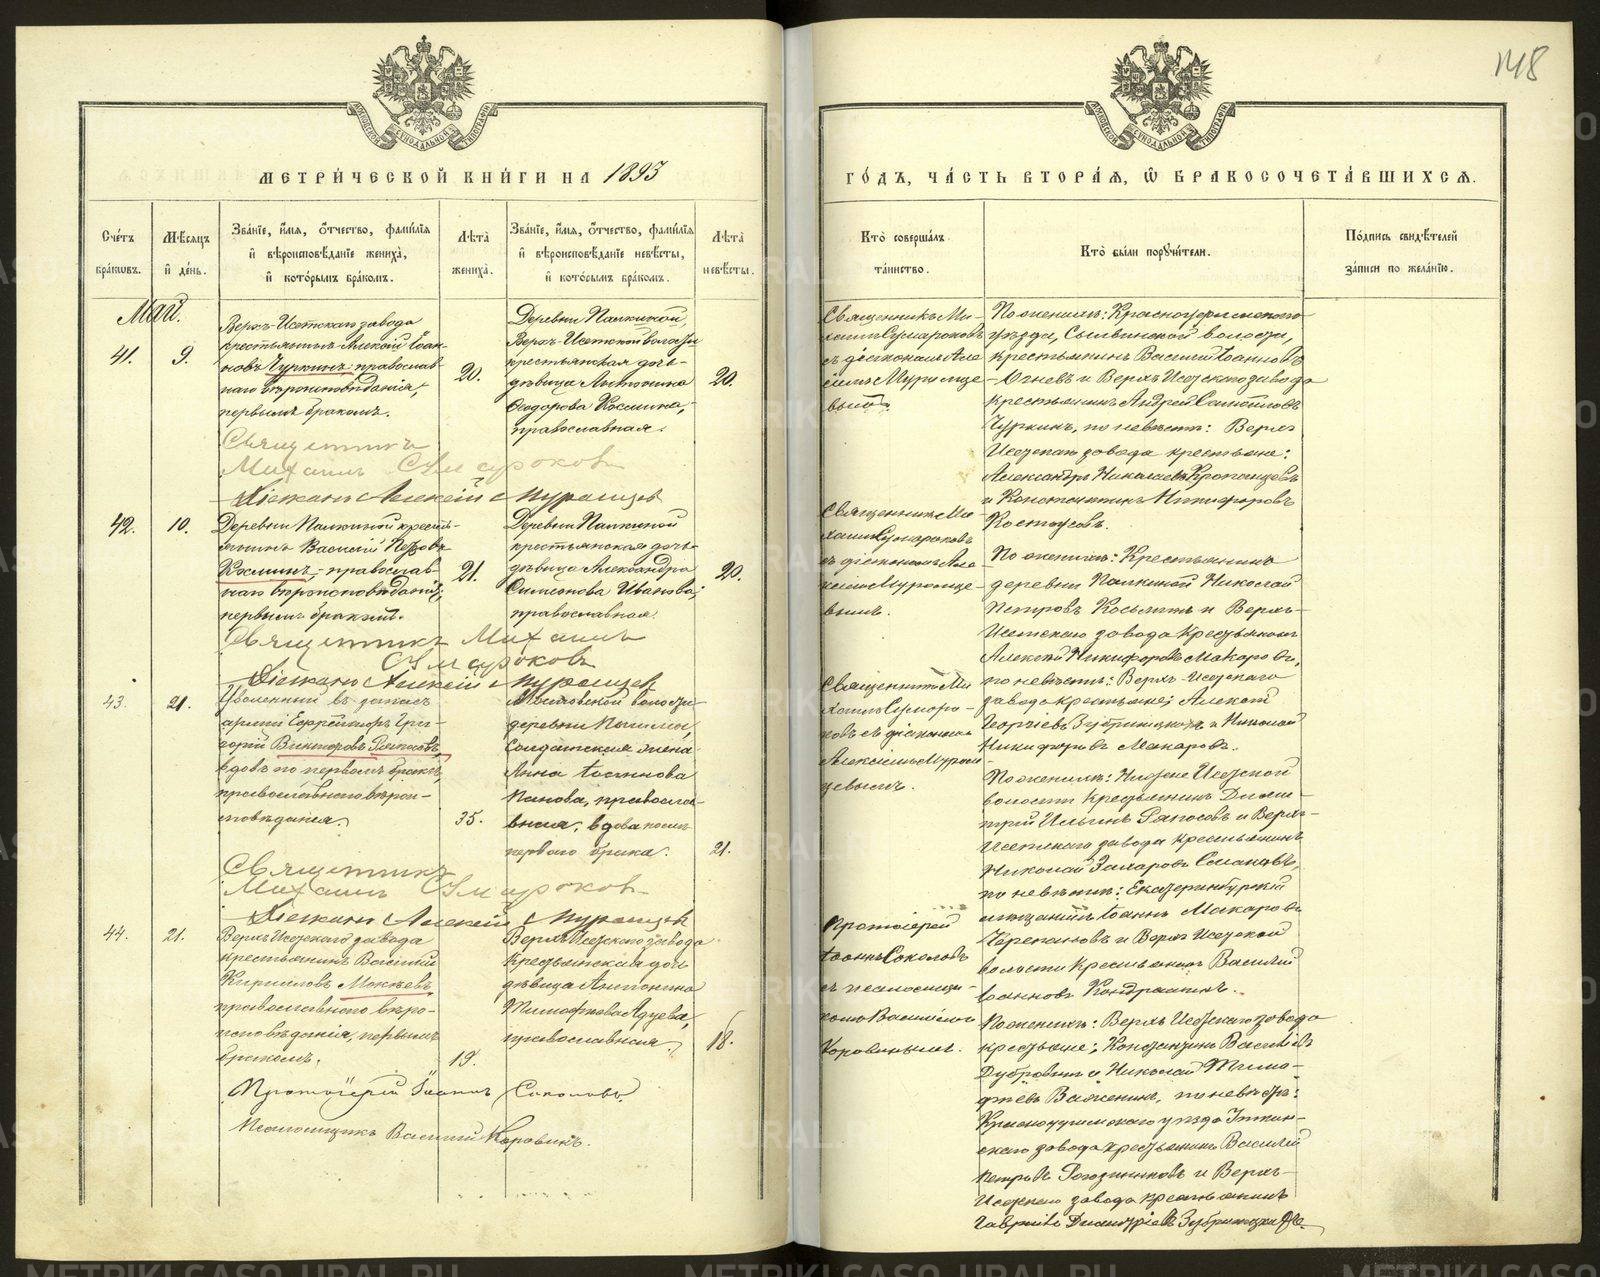 148
МОСКОВСКОЙ СѴНОДАЛЬНОЙ ТИПОГРАФІИ
МОСКОВСКОЙ СѴНОДАЛЬНОЙ ТИПОГРАФІИ
МЕТРИ́ЧЕСКОЙ КНИ́ГИ НА 1893
ГО́ДЪ, ЧА́СТЬ ВТОРА́Я, Ѽ БРАКОСОЧЕТА́ВШИХСЯ.
Сче́тъ
бра́кѡвъ.
Мѣ́сяцъ
и҆ де́нь.
Зва́нїе, и҆́мя, ѻ҆́тчество, фами́лїя
и҆ вѣроисповѣ́данїе жениха̀,
и҆ кото́рымъ бра́комъ.
Лѣ́та
жениха̀.
Зва́нїе, и҆́мя, ѻ҆́тчество, фами́лїя
и҆ вѣроисповѣ́данїе невѣ́сты,
и҆ кото́рымъ бра́комъ.
Лѣ́та
невѣ́сты.
Кто̀ соверша́лъ
та́инство.
Кто̀ бы́ли порꙋчи́тели.
По́дпись свидѣ́телей
за́писи по жела́нїю.
Май.
41.
9.
Верхъ-Исетскаго завода
крестьянинъ Алексій Іоан-
новъ Чуркинъ, православ-
наго вѣроисповѣданія,
первымъ бракомъ.
20.
Деревни Палкиной,
Верхъ-Исетской волости
крестьянская дочь-
дѣвица Антонина
Ѳеодорова Косьмина,
православная.
20.
Священникъ Ми-
хаилъ Сумароковъ
съ діакономъ Але-
ксіемъ Мурзице-
вымъ.
По женихѣ: Красноуфимскаго
уѣзда, Сылвинской волости,
крестьянинъ Василій Іоанновъ
Огневъ и Верхъ-Исетскаго завода
крестьянинъ Андрей Самойловъ
Чуркинъ, по невѣстѣ: Верхъ
Исетскаго завода крестьяне:
Александръ Николаевъ Кропанцевъ
и Константинъ Никифоровъ
Костоусовъ.
Священникъ
Михаилъ Сумароковъ
Діаконъ Алексій Мурзицевъ
42.
10.
Деревни Палкиной кресть-
янинъ Василій Петровъ
Косминъ, православ-
наго вѣроисповѣданія,
первымъ бракомъ.
21.
Деревни Палкиной
крестьянская дочь-
дѣвица Александра
Симеонова Иванова,
православная.
20.
Священникъ Ми-
хаилъ Сумароковъ
съ діакономъ Але-
ксіемъ Мурзице-
вымъ.
По женихѣ: Крестьянинъ
деревни Палкиной Николай
Петровъ Косьминъ и Верхъ-
Исетскаго завода крестьянинъ
Алексѣй Никифоровъ Макаровъ,
по невѣстѣ: Верхъ-Исетскаго
завода крестьяне; Алексѣй
Георгіевъ Зубрицкихъ и Николай
Никифоровъ Макаровъ.
Священникъ Михаилъ
Сумароковъ
Діаконъ Алексій Мурзицевъ
43.
21.
Уволенный въ запасъ
арміи Ефрейторъ Гри-
горій Викторовъ
вдовъ по первомъ бракѣ,
православнаго вѣрои-
сповѣданія.
35.
волости
деревни
Солдатская жена
Анна Іоаннова
Панова, правосла-
вная, вдова послѣ
перваго брака.
21.
Священникъ Ми-
хаилъ Сумаро-
ковъ съ діакономъ
Алексіемъ Мурзи
цевымъ.
По женихѣ: Нижне Исетской
волости крестьянинъ Дими-
трій Ильинъ и Верхъ-
Исетскаго завода крестьянинъ
Николай Захаровъ
по невѣстѣ: Екатеринбургскій
мѣщанинъ Іоаннъ Макаровъ
Черепановъ и Верхъ Исетской
волости крестьянинъ Василій
Іоанновъ Кондрашинъ.
Священникъ
Михаилъ Сумароковъ
Діаконъ Алексій Мурзицевъ
44.
21.
Верхъ Исетскаго завода
крестьянинъ Василій
Кирилловъ Мокѣевъ
православнаго вѣро-
исповѣданія, первымъ
бракомъ.
19.
Верхъ Исетскаго завода
крестьянская дочь
дѣвица Антонина
Тимофеева Адуева,
православная.
18.
Протоіерей
Іоаннъ Соколовъ
съ псаломщи-
комъ Василіемъ
Коровинымъ.
По женихѣ: Верхъ Исетскаго завода
крестьяне; Константинъ Василіевъ
Дубровинъ и Николай Тимо-
фѣевъ Важенинъ, по невѣстѣ:
Красноуфимскаго уѣзда Уткин-
скаго завода крестьянинъ Василій
Петровъ Рогозинниковъ и Верхъ-
Исетскаго завода крестьянинъ
Гавріилъ Димитріевъ Зубрицкихъ
Протоіерей Іоаннъ Соколовъ.
Псаломщикъ Василій Коровинъ.
METRIKI.CASO-URAL.RU